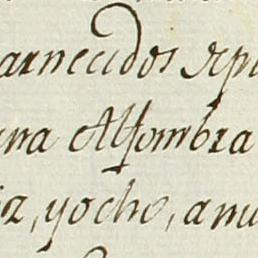 arnecidos
una Alfombra
iz, y ocho, a mu